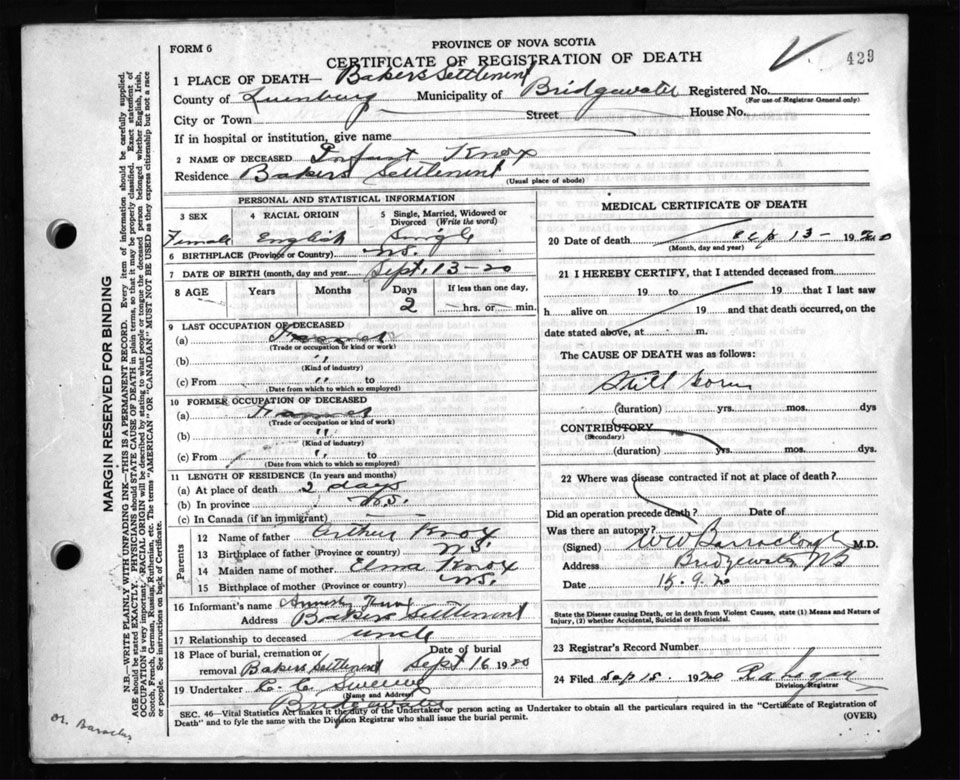 FORM 6
PROVINCE OF NOVA SCOTIA
CERTIFICATE OF REGISTRATION OF DEATH
429
1 PLACE OF DEATH— Bakers Settlement
County of Lunenburg Municipality of Bridgewater Registered No.
(For use of Registrar General only)
City or Town Street House No.
If in hospital or institution, give name
2 NAME OF DECEASED Infant Knox
Residence Bakers Settlement
(Usual place of abode)
PERSONAL AND STATISTICAL INFORMATION
3 SEX 4 RACIAL ORIGIN 5 Single, Married, Widowed or Divorced (Write the word)
Female English Single
6 BIRTHPLACE (Province or Country) N.S.
7 DATE OF BIRTH (month, day and year) Sept. 13-20
8 AGE Years Months Days If less than one day,
2 hrs. or min.
9 LAST OCCUPATION OF DECEASED
(a)
(Trade or occupation or kind or work)
(b) "
(Kind of industry)
(c) From " to
(Date from which to which so employed)
10 FORMER OCCUPATION OF DECEASED
(a)
(Trade or occupation or kind of work)
(b) "
(Kind of industry)
(c) From " to
(Date from which to which so employed)
11 LENGTH OF RESIDENCE (In years and months)
(a) At place of death 2 days
(b) In province N.S.
(c) In Canada (if an immigrant)
Parents
12 Name of father Arthur Knox
13 Birthplace of father (Province or country) N.S.
14 Maiden name of mother Elma Knox
15 Birthplace of mother (Province or country) N.S.
16 Informant's name
Address Bakers Settlement
17 Relationship to deceased uncle
18 Place of burial, cremation or removal Bakers Settlement Date of burial Sept 16 1920
19 Undertaker C. C. Sweeny
(Name and Address)
Bridgewater
MEDICAL CERTIFICATE OF DEATH
20 Date of death Sep 13- 1920
(Month, day and year)
21 I HEREBY CERTIFY, that I attended deceased from
19 to 19 that I last saw
h alive on 19 and that death occurred, on the
date stated above, at m.
The CAUSE OF DEATH was as follows:
Still born
(duration) yrs. mos. dys
CONTRIBUTORY
(Secondary)
(duration) yrs. mos. dys.
22 Where was disease contracted if not at place of death?
Did an operation precede death? Date of
Was there an autopsy?
(Signed) W W Barraclough M.D.
Address Bridgewater NS
Date 15.9.20
State the Disease causing Death, or in death from Violent Causes, state (1) Means and Nature of Injury, (2) whether Accidental, Suicidal or Homicidal.
23 Registrar's Record Number
24 Filed Sep 15. 1920
Division Registrar
SEC. 46—Vital Statistics Act makes it the duty of the Undertaker or person acting as Undertaker to obtain all the particulars required in the "Certificate of Registration of
Death" and to fyle the same with the Division Registrar who shall issue the burial permit. (OVER)
MARGIN RESERVED FOR BINDING
N.B.—WRITE PLAINLY WITH UNFADING INK—THIS IS A PERMANENT RECORD. Every item of information should be carefully supplied.
AGE should be stated EXACTLY. PHYSICIANS should STATE CAUSE OF DEATH in plain terms, so that it may be properly classified. Exact statement of
OCCUPATION is very important. RACIAL ORIGIN will be described by stating to what people or tongue the deceased person belonged whether English, Irish,
Scotch, French, German, Russian, Ruthenian, etc. The terms "AMERICAN" or "CANADIAN" MUST NOT BE USED as they express citizenship but not a race
or people. See instructions on back of Certificate.